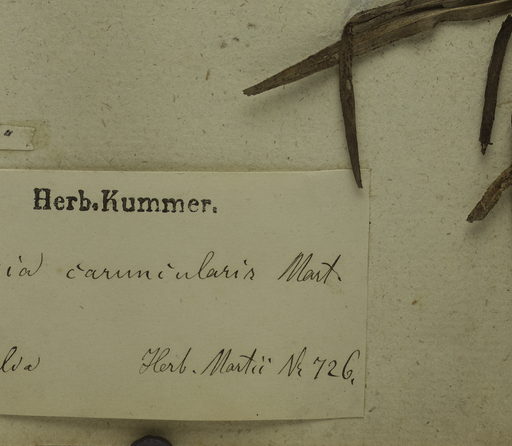 Herb. Kummer.
ia caruncularis Mart.
lia Herb. Martii Nr 726.